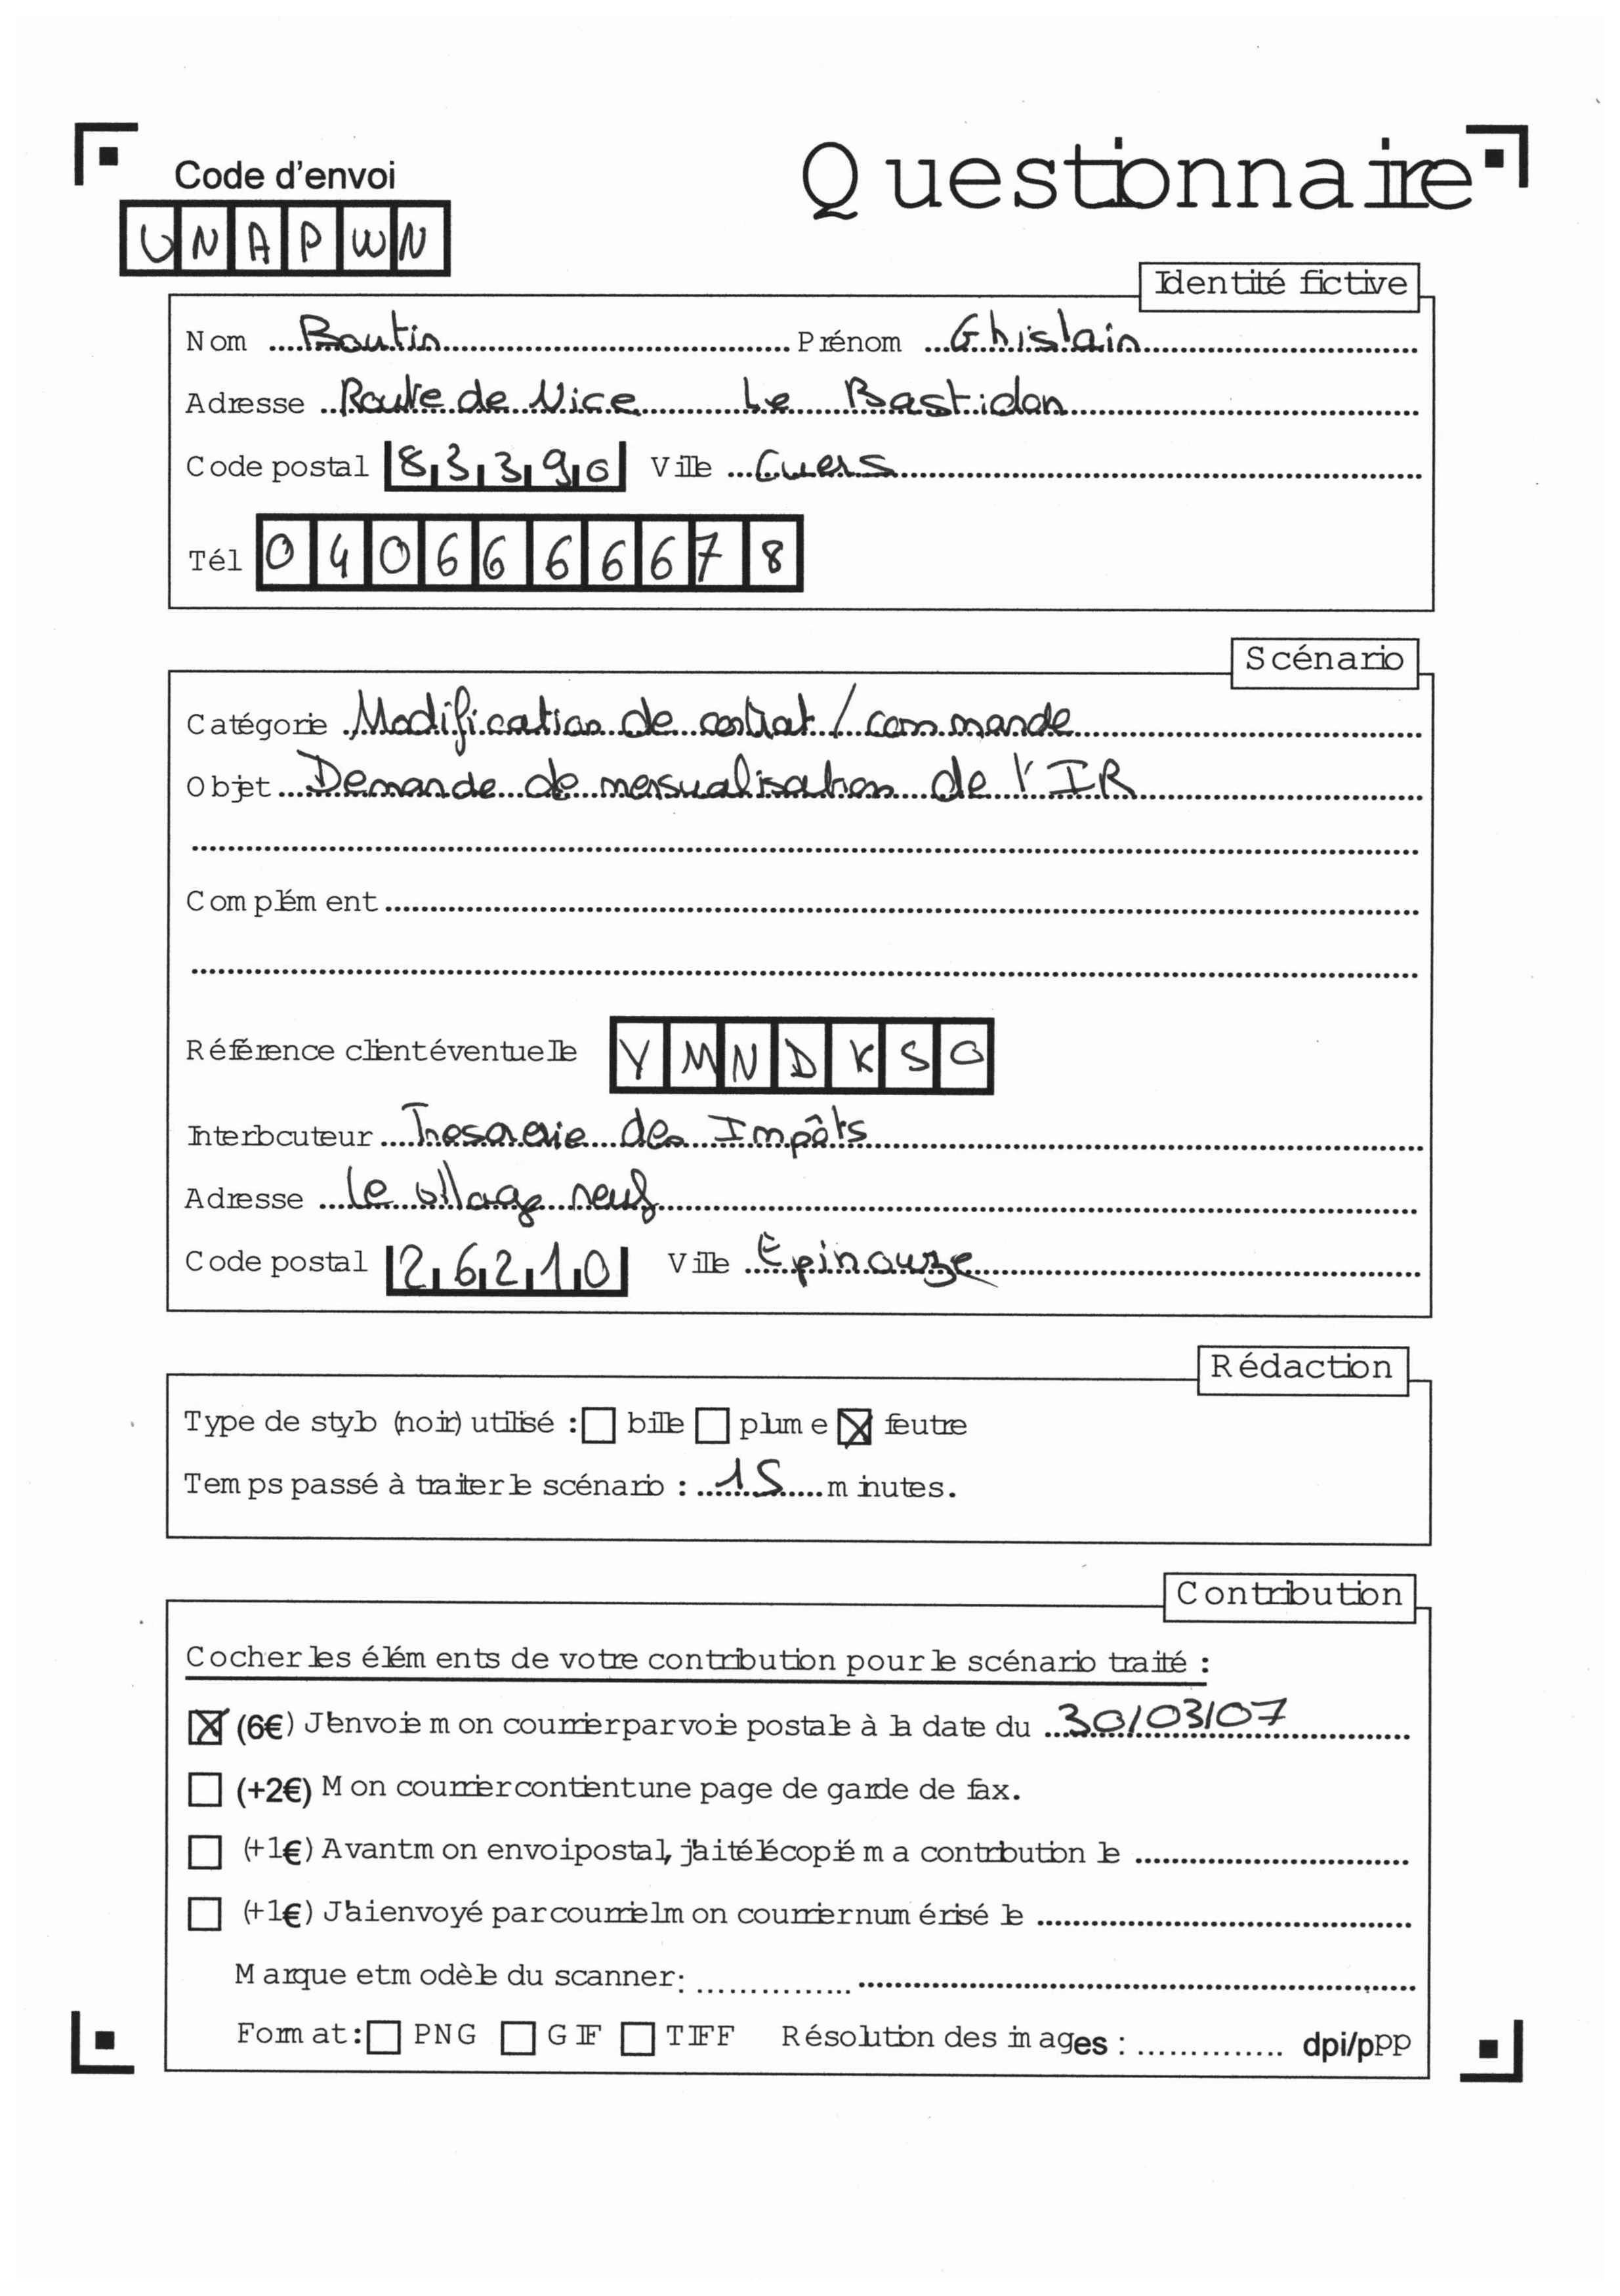 Code d'envoi
Questionnaire
UNAPWN
Identité fictive
Nom Boutin Prénom Ghislain
Adresse Route de Nice Le Bastidon
Code postal 83390 Ville Cuers
Tél 0406666678
Scénario
Catégorie Modification de contrat / commande
Objet Demande de mensualisation de l'IR
Complément
Référence client éventuelle YMNDKSO
Interlocuteur Tresorerie des Impôts
Adresse le village neuf
Code postal 26210 Ville Epinouze
Rédaction
Type de stylo (noir) utilisé : bille plume feutre
Temps passé à traiter le scénario : 15 minutes.
Contribution
Cocher les éléments de votre contribution pour le scénario traité :
(6€) J'envoie mon courrier par voie postale à la date du 30/03/07
(+2€) Mon courrier contient une page de garde de fax.
(+1€) Avant mon envoi postal, j'ai télécopié ma contribution le
(+1€) J'ai envoyé par courriel mon courrier numérisé le
Marque et modèle du scanner:
Format: PNG GIF TIFF Résolution des images : dpi/ppp